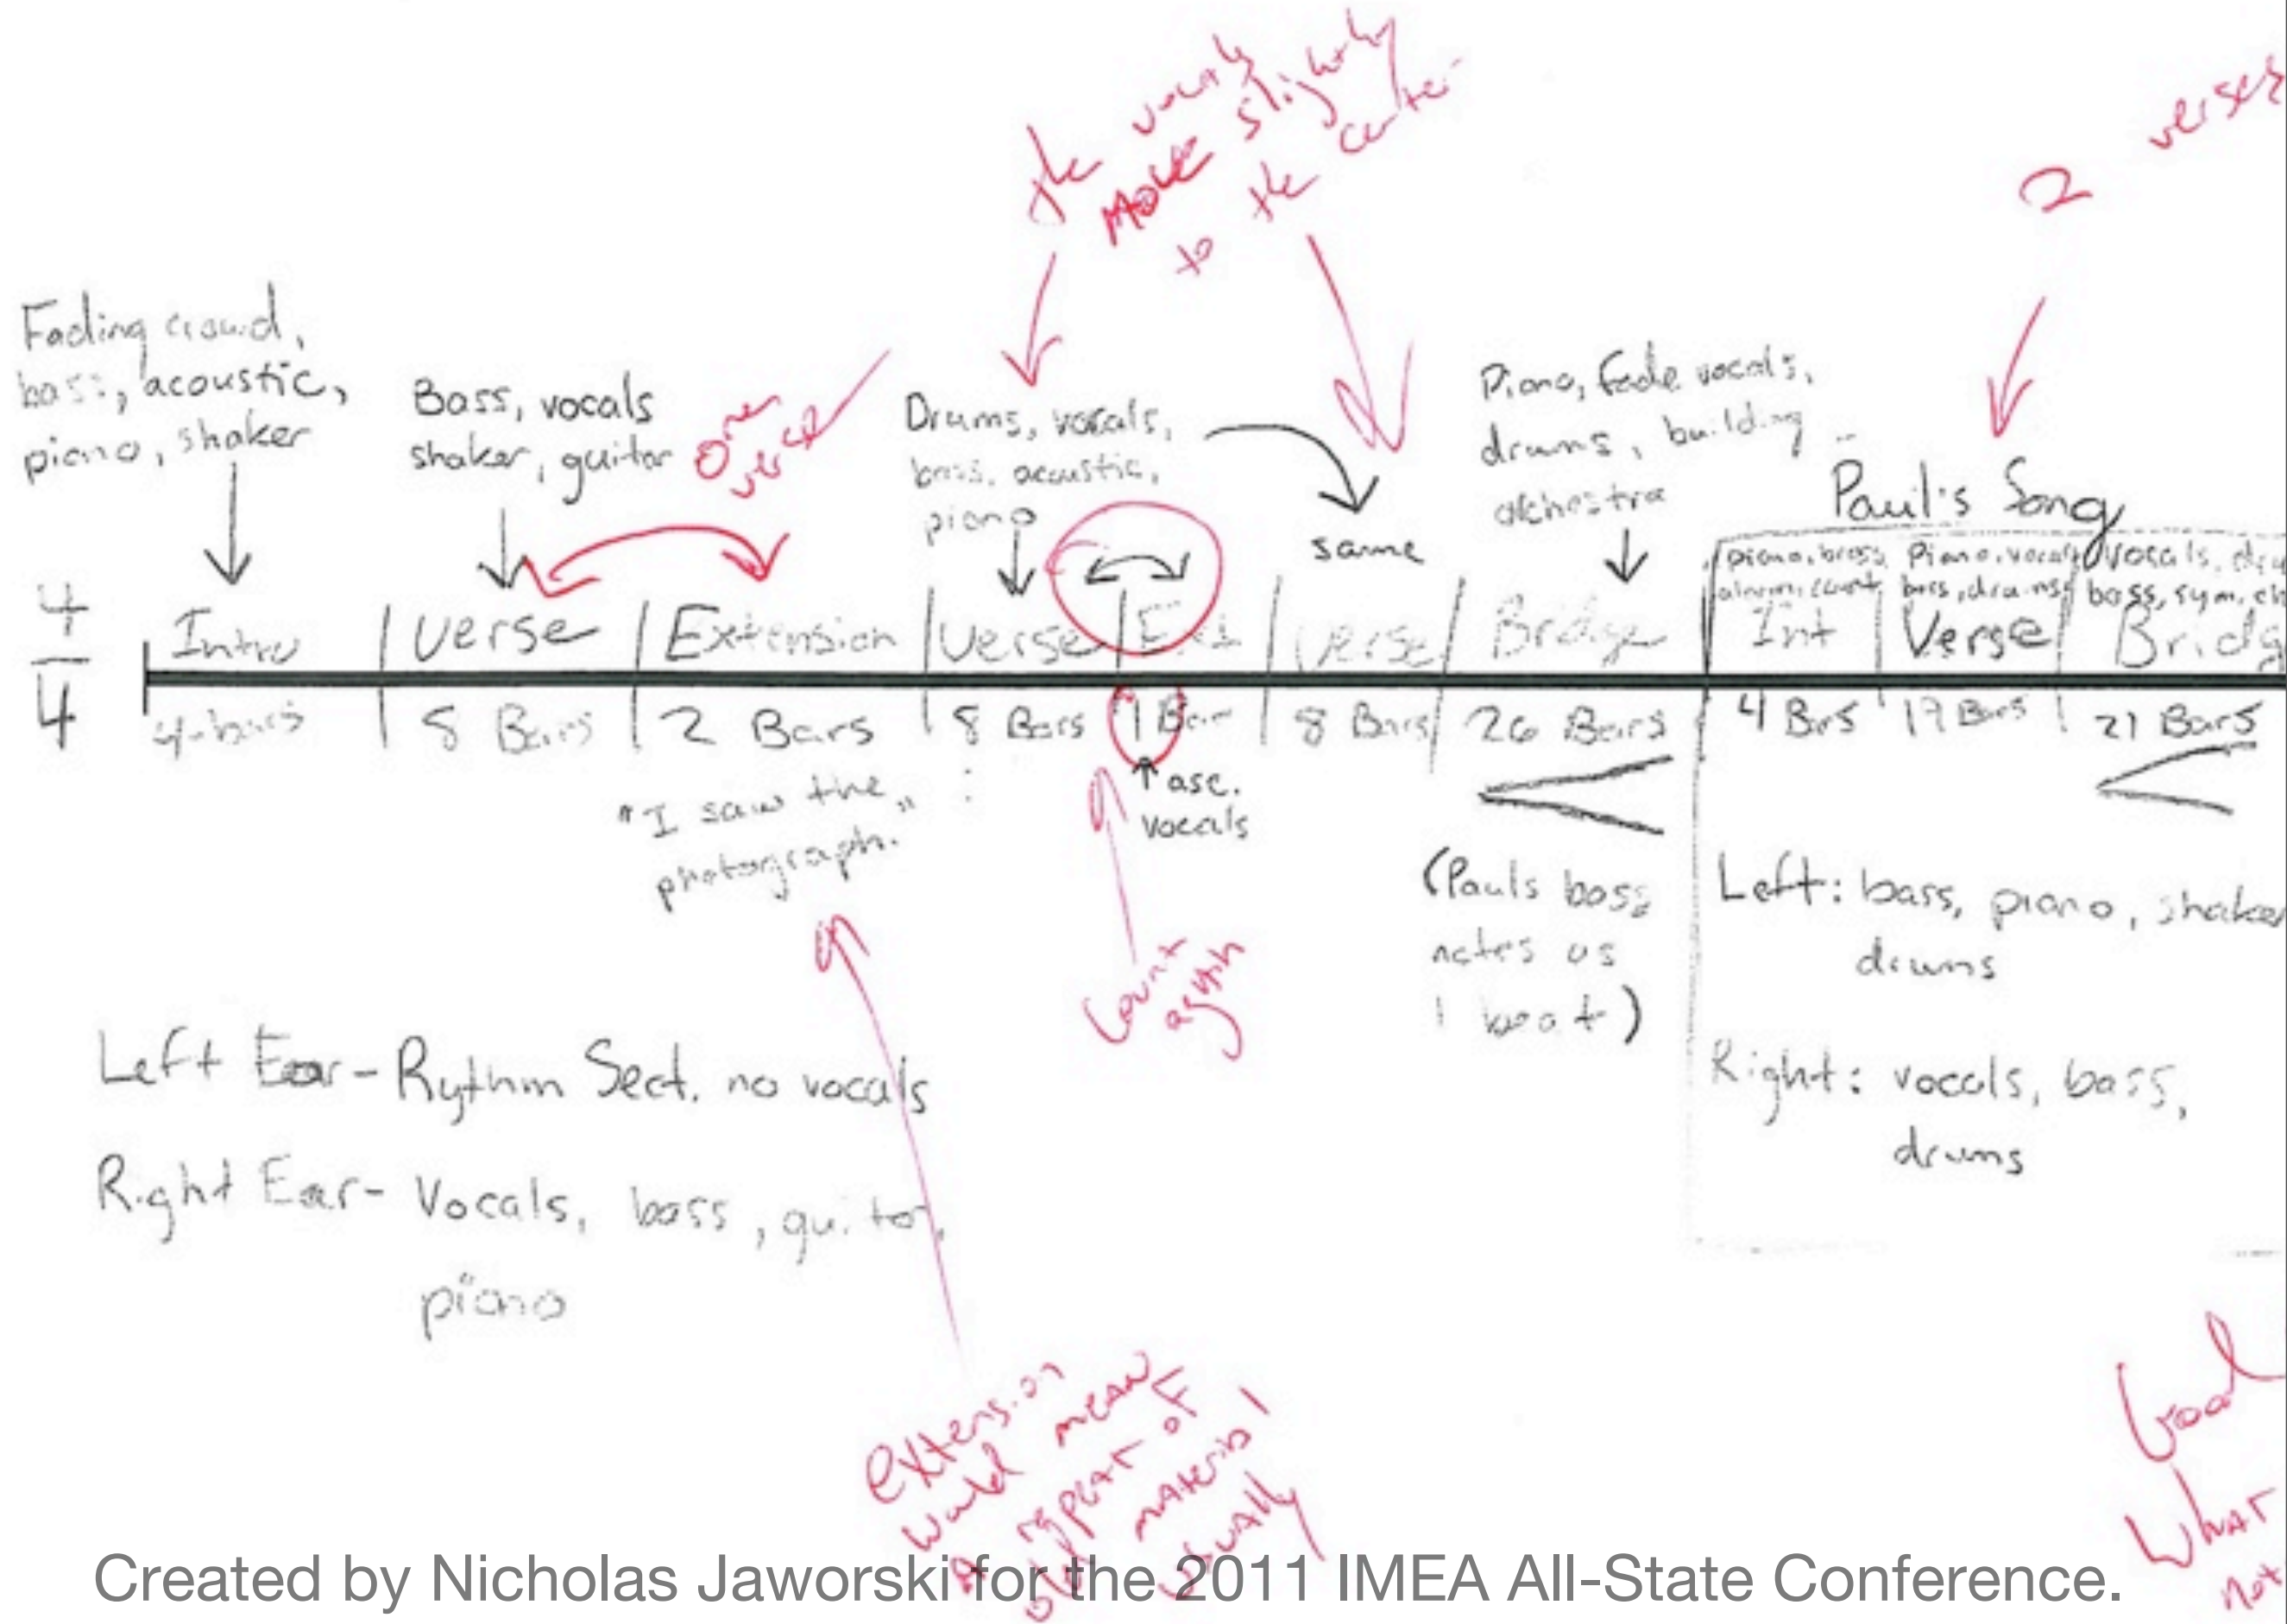 the vocals
move slightly
to the center
2 verses
Fading crowd,
bass, acoustic,
piano, shaker
Bass, vocals
shaker, guitar
One
verse
Drums, vocals,
bass, acoustic,
piano
same
Piano, fade vocals,
drums, building
orchestra
Paul's Song
piano, bass,
alarm, count
Piano, vocals
bass, drums
vocals, dru
bass, sym, ch
4
4
Intro | Verse | Extension | Verse | Ext | Verse | Bridge | Int | Verse | Bridg
4-bars | 8 Bars | 2 Bars | 8 Bars | 1 Bar | 8 Bars | 26 Bars | 4 Bars | 19 Bars | 21 Bars
"I saw the
photograph."
asc.
vocals
Count
again
(Pauls bass
notes as
1 beat)
Left: bass, piano, shaker
drums
Right: vocals, bass,
drums
Left Ear - Rythm Sect. no vocals
Right Ear - Vocals, bass, guitar,
piano
extension
would mean
a repeat of
old material
usually
Good
What
not
Created by Nicholas Jaworski for the 2011 IMEA All-State Conference.